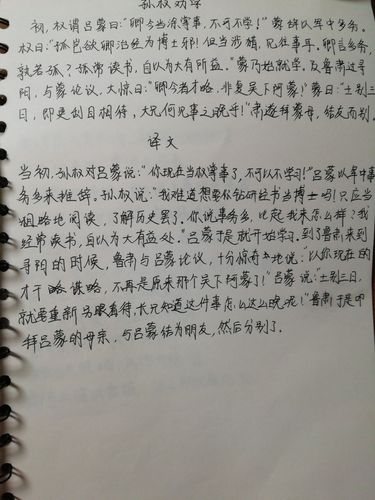 孙权劝学
初，权谓吕蒙曰："卿今当涂掌事，不可不学！"蒙辞以军中多务。
权曰："孤岂欲卿治经为博士邪！但当涉猎，见往事耳。卿言多务，
孰若孤？孤常读书，自以为大有所益。"蒙乃始就学。及鲁肃过寻
阳，与蒙论议，大惊曰："卿今者才略，非复吴下阿蒙！"蒙曰："士别三
日，即更刮目相待，大兄何见事之晚乎！"肃遂拜蒙母，结友而别。
译文
当初，孙权对吕蒙说："你现在当权掌事了，不可以不学习！"吕蒙以军中事
务多来推辞。孙权说："我难道想要你钻研经书当博士吗！只应当
粗略地阅读，了解历史罢了。你说事务多，比起我来怎么样？我
经常读书，自认为大有益处。"吕蒙于是就开始学习。到了鲁肃来到
寻阳的时候，鲁肃与吕蒙论议，十分惊奇地说："以你现在的
才干略谋略，不再是原来那个吴下阿蒙了！"吕蒙说："士别三日，
就要重新另眼看待，长兄知道这件事怎么这么晚呢！"鲁肃于是叩
拜吕蒙的母亲，与吕蒙结为朋友，然后分别了。